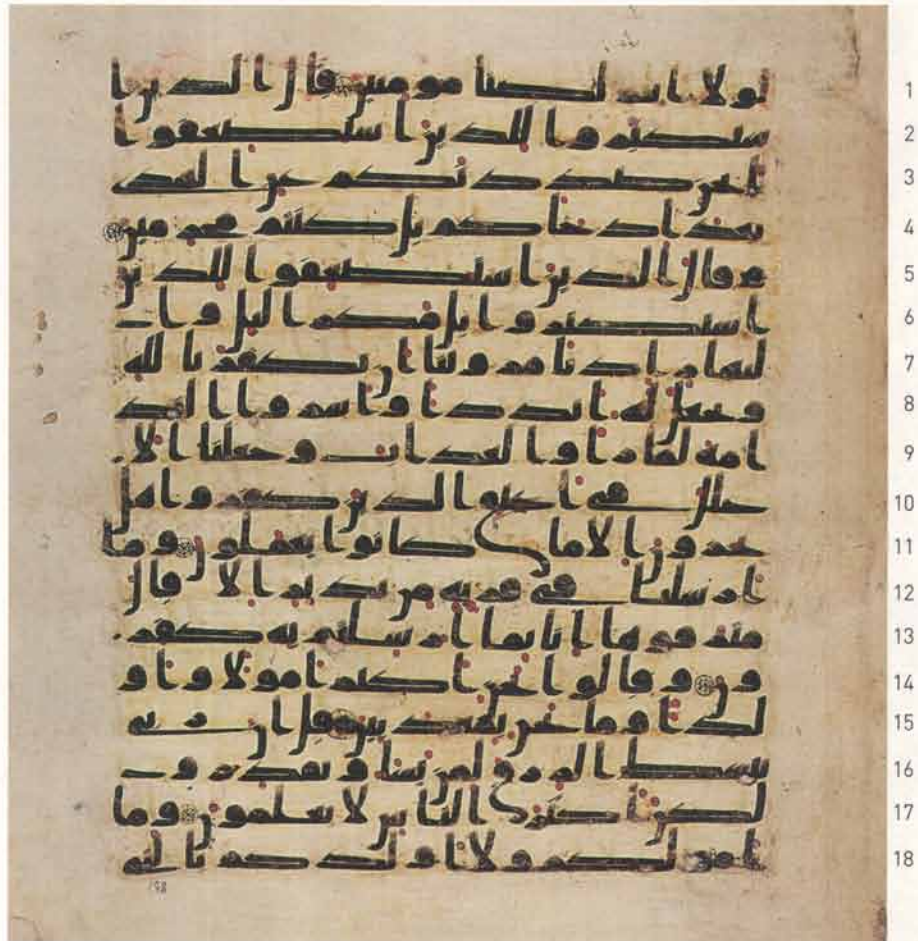 1 لولا انتم لكنا مومنين قال الذين ا
2 ستكبروا للذين استضعفوا
3 انحن صددنكم عن الهدى
4 بعد اذ جاكم بل كنتم مجرمين
5 وقال الذين استضعفوا للذين
6 استكبروا بل مكر اليل وا
7 لنهار اذ تامروننا ان نكفر بالله
8 ونجعل له اندادا واسروا الند
9 امة لما راوا العذاب وجعلنا الا
10 غلل في اعناق الذين كفروا هل
11 يجزون الا ما كانوا يعملون وما
12 ارسلنا في قرية من نذير الا قال
13 مترفوها انا بما ارسلتم به كفر
14 ون وقالوا نحن اكثر امولا واو
15 لدا وما نحن بمعذبين قل ان ربي
16 يبسط الرزق لمن يشا ويقدر و
17 لكن اكثر الناس لا يعلمون وما
18 امولكم ولا اولدكم بالتي
198